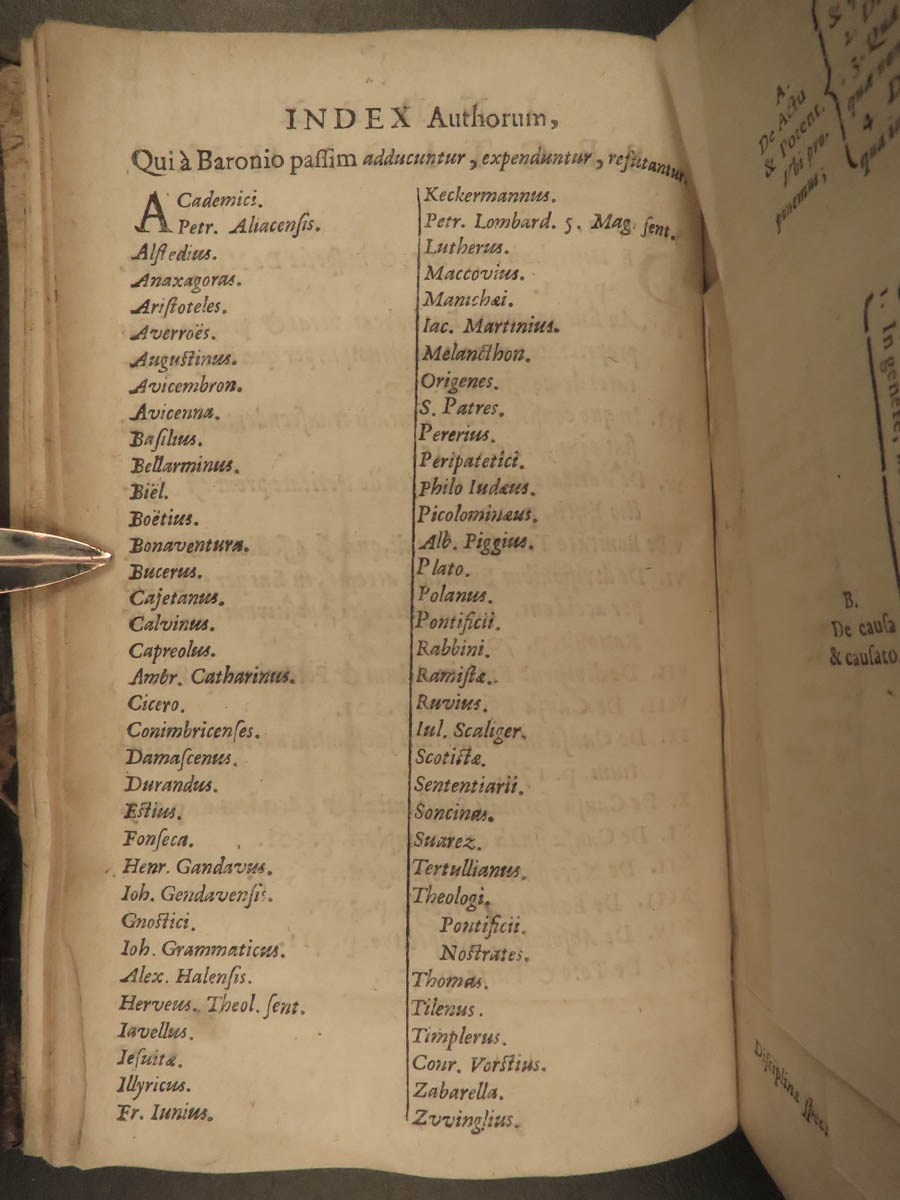 INDEX Authorum,
Qui à Baronio paſſim adducuntur, expenduntur, refutantur.
ACademici.
Petr. Aliacenſis.
Alſtedius.
Anaxagoras.
Ariſtoteles.
Averroës.
Auguſtinus.
Avicembron.
Avicenna.
Baſilius.
Bellarminus.
Biël.
Boëtius.
Bonaventura.
Bucerus.
Cajetanus.
Calvinus.
Capreolus.
Ambr. Catharinus.
Cicero.
Conimbricenſes.
Damaſcenus.
Durandus.
Eſtius.
Fonſeca.
Henr. Gandavus.
Ioh. Gendavenſis.
Gnoſtici.
Ioh. Grammaticus.
Alex. Halenſis.
Herveus. Theol. ſent.
Iavellus.
Ieſuitæ.
Illyricus.
Fr. Iunius.
Keckermannus.
Petr. Lombard. 5. Mag. ſent.
Lutherus.
Maccovius.
Manichæi.
Iac. Martinius.
Melancthon.
Origenes.
S. Patres.
Pererius.
Peripatetici.
Philo Iudæus.
Picolominæus.
Alb. Piggius.
Plato.
Polanus.
Pontificii.
Rabbini.
Ramiſtæ.
Ruvius.
Iul. Scaliger.
Scotiſtæ.
Sententiarii.
Soncinas.
Suarez.
Tertullianus.
Theologi.
Pontificii.
Noſtrates.
Thomas.
Tilenus.
Timplerus.
Conr. Vorſtius.
Zabarella.
Zvvinglius.
A.
De Actu
& Potent.
Ubi pro-
ponemus,
2. D
3. Quæ
quæ
4 D
quæ
1. In genere,
B.
De cauſa
& cauſato
Diſciplina ſpeci